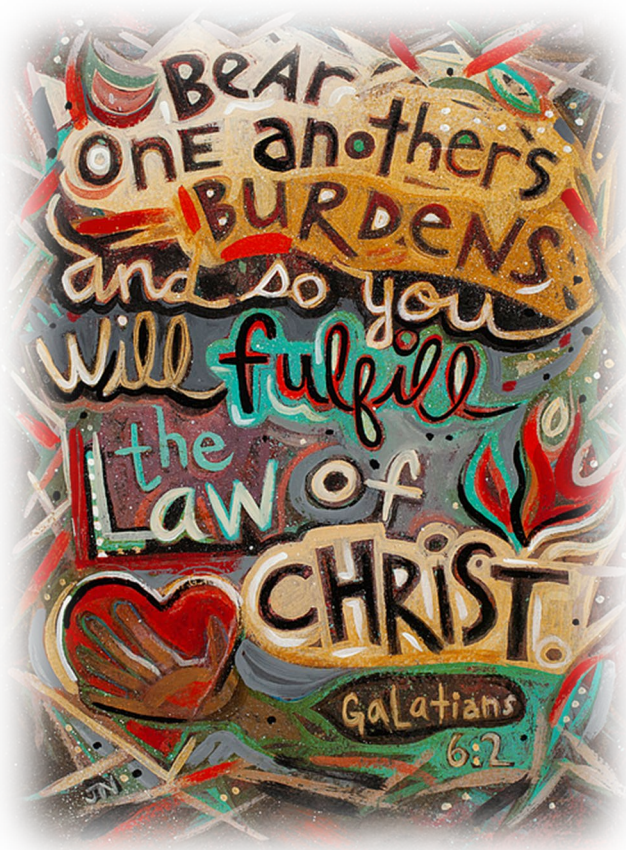 BeAr
OnE another's
BURDeNS
and so you
Will fulfill
the
Law of
CHRiST.
GaLatians
6:2
JN